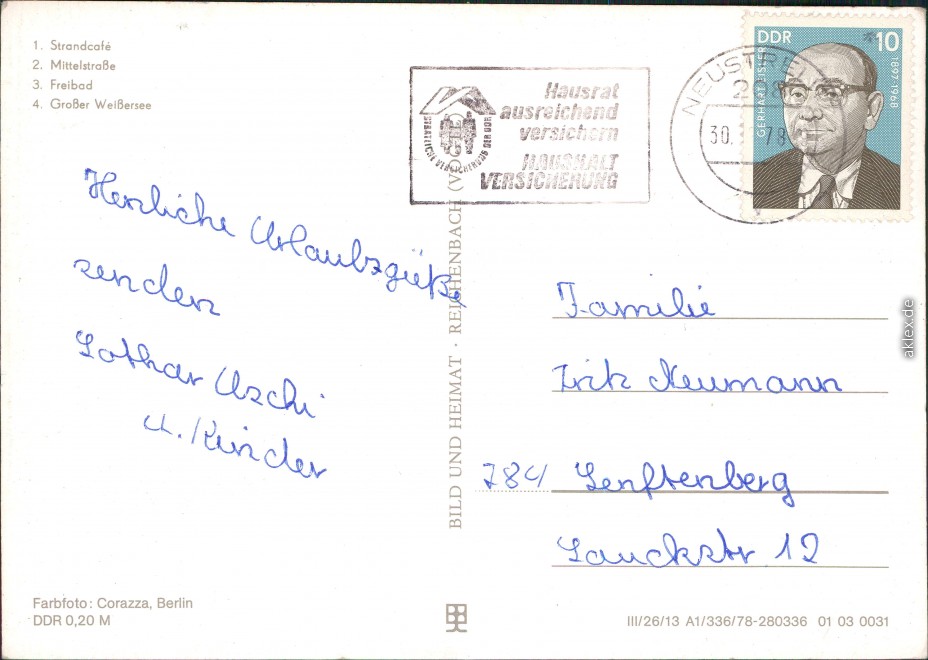 1. Strandcafé
2. Mittelstraße
3. Freibad
4. Großer Weißersee
Herzliche Urlaubsgrüße
senden
Lothar Uschi
u. Kinder
Farbfoto: Corazza, Berlin
DDR 0,20 M
BILD UND HEIMAT · REICHENBACH (VOGTL)
STAATLICHE VERSICHERUNG DER DDR
Hausrat
ausreichend
versichern
HAUSHALT
VERSICHERUNG
NEUSTREL
208
30. 78
DDR 10
GERHART EISLER
1897-1968
Familie
Fritz Neumann
784 Senftenberg
Lauckstr 12
III/26/13 A1/336/78-280336 01 03 0031
aklex.de